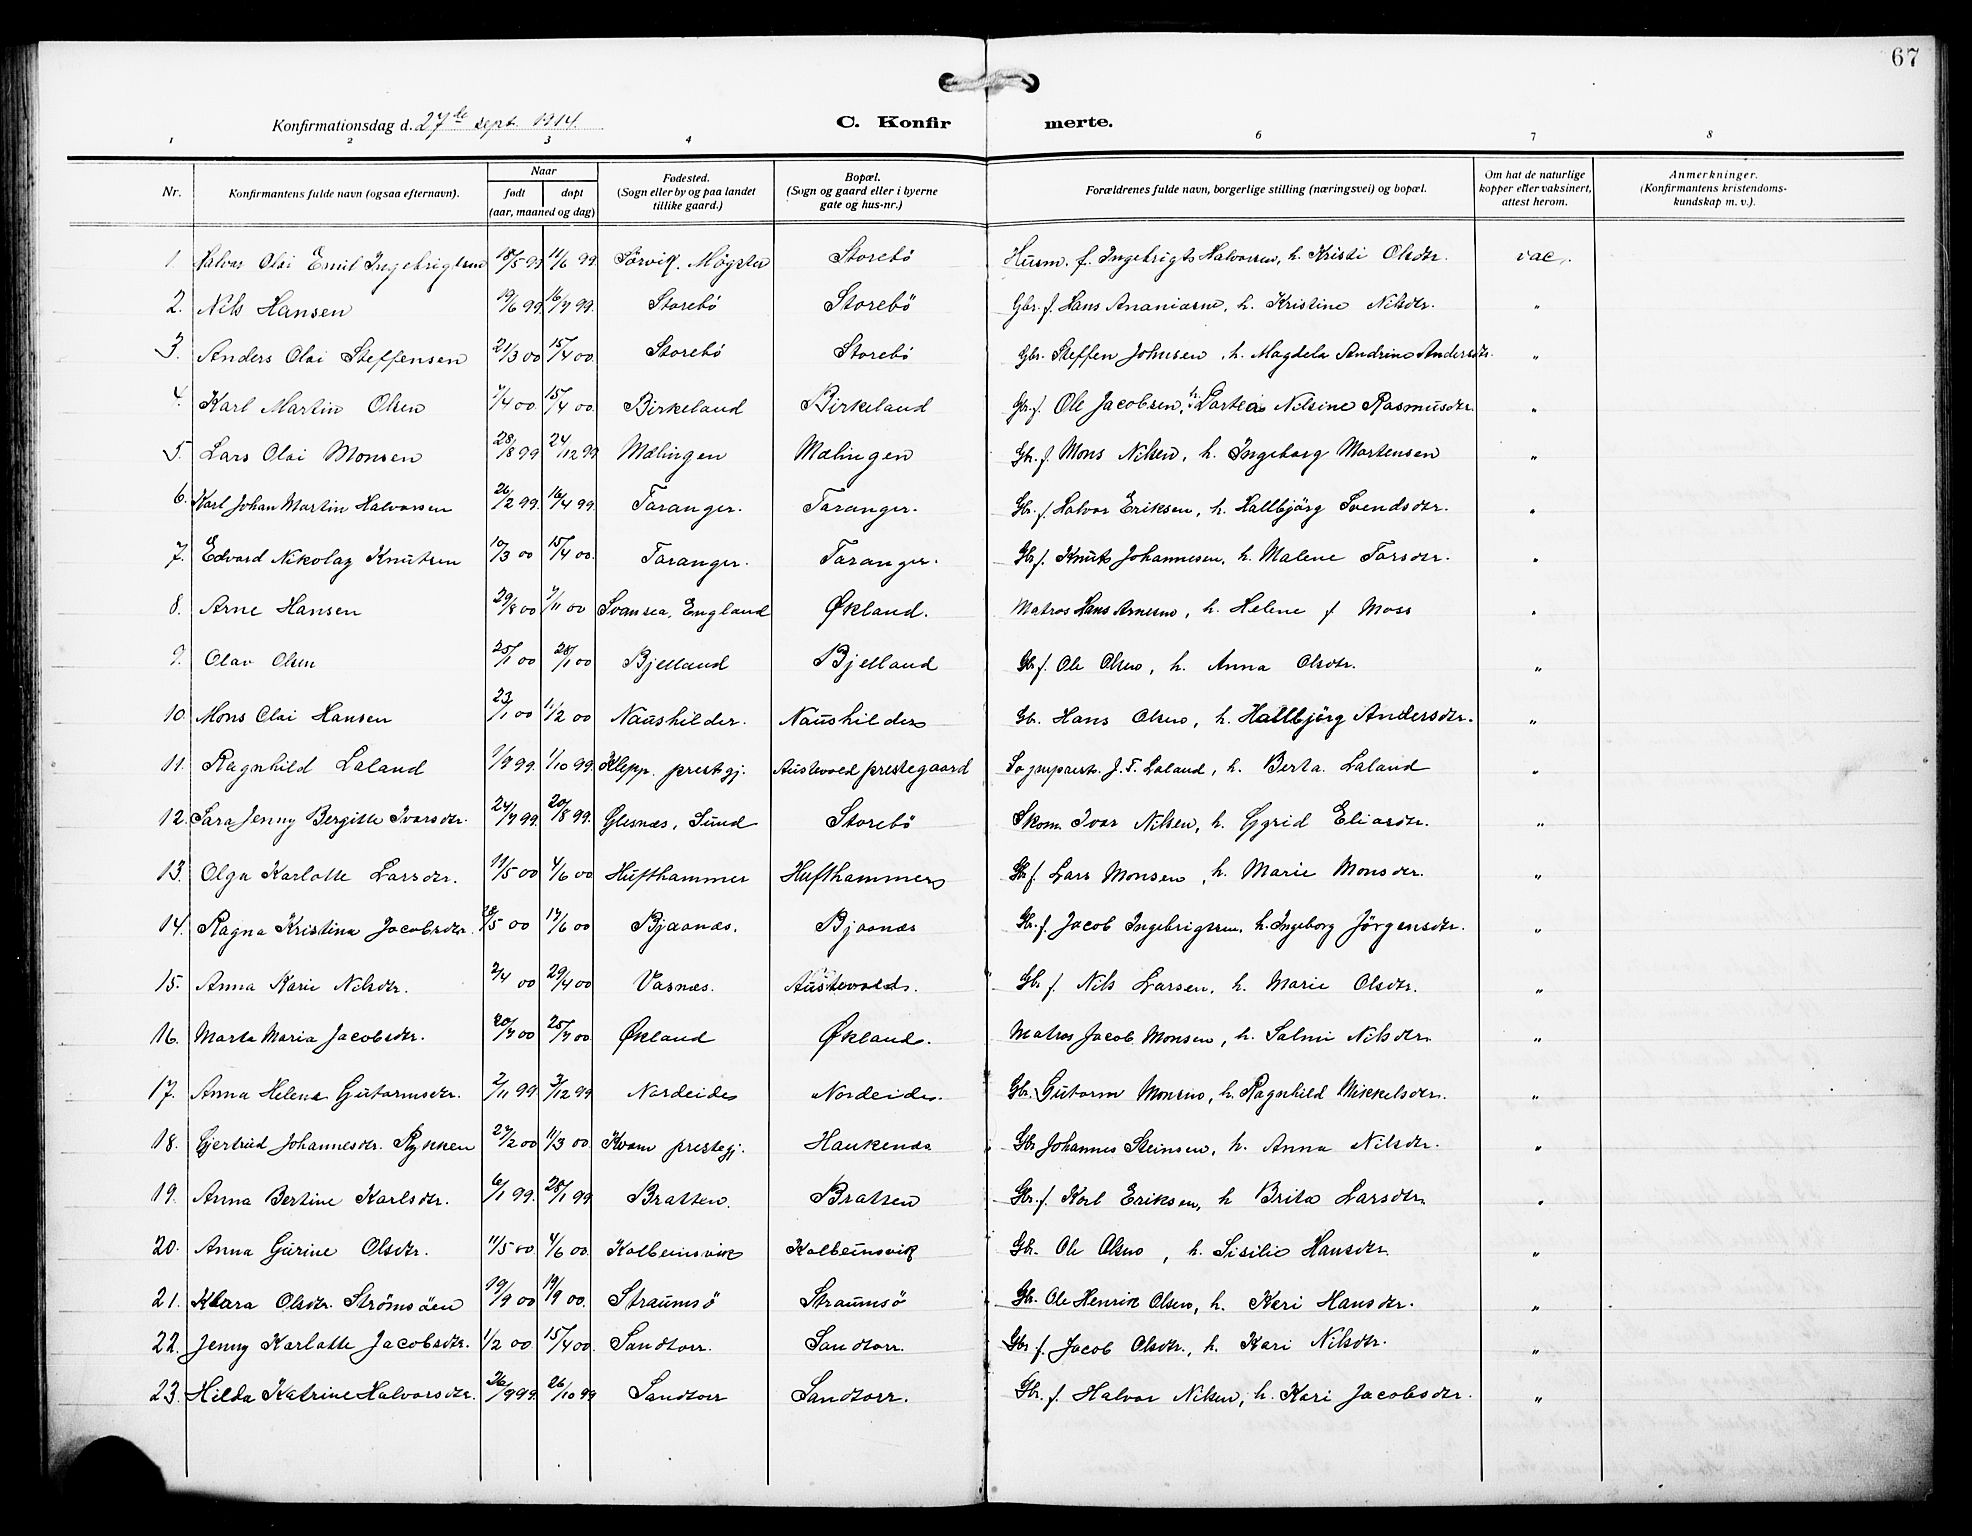 67
Konfirmationsdag d. 27de sept. 1914.
C. Konfirmerte.
1 2 3 4 6 7 8
Nr. Konfirmantens fulde navn (ogsaa efternavn). Naar født døpt (aar, maaned og dag) Fødested. (Sogn eller by og paa landet tillike gaard.) Bopæl. (Sogn og gaard eller i byerne gate og hus-nr.) Forældrenes fulde navn, borgerlige stilling (næringsvei) og bopæl. Om hat de naturlige kopper efter vaksinert, attest herom. Anmerkninger. (Konfirmantens kristendoms-kundskap m. v.).
1. Halvor Olai Emil Ingebrigtsen 18/5 99 11/6 99 Sörvik. Møgster Storebö Husm. f. Ingebrigt Halvorsen, h. Kristi Olsdtr. vac.
2. Nils Hansen 19/6 99 16/7 99. Storebö Storebö Gbr. f. Hans Ananiasen, h. Kristine Nilsdtr. "
3. Anders Olai Steffensen 21/3 00 15/4 00. Storebö Storebö Gbr. Steffen Johnsen, h. Magdela Andrine Andersdtr. "
4. Karl Martin Olsen 7/4 00. 15/4 00. Birkeland Birkeland Gbr. f. Ole Jacobsen, h. Dortea Nilsine Rasmusdtr. "
5. Lars Olai Monsen 28/8 99 24/12 99 Mælingen Mælingen Gbr. f. Mons Nilsen, h. Ingeborg Mortensen "
6. Karl Johan Martin Halvorsen 26/2 99. 16/4 99. Taranger. Taranger. Gbr. f. Halvor Eriksen, h. Hallbjörg Svendsdtr. "
7. Edvard Nikolay Knutsen 10/3 00 15/4 00. Taranger. Taranger. Gbr f. Knut Johannesen, h. Malene Larsdtr. "
8. Arne Hansen 29/8 00 7/11 00 Svansea, England Økland. Matros Hans Arnesen, h. Helene f Moss "
9. Olav Olsen 25/1 00 28/1 00 Bjelland Bjelland Gbr f. Ole Olsen, h. Anna Olsdtr. "
10. Mons Olai Hansen 23/1 00 11/2 00 Naushilder. Naushilder Gbr. Hans Olsen, h. Hallbjörg Andersdtr. "
11. Ragnhild Laland 1/9 99. 1/10 99. Klepp. prestgj. Austevold prestegaard Sogneprest. J. T. Laland, h. Berta. Laland "
12. Sara Jenny Bergitte Ivarsdtr. 24/7 99. 20/8 99. Glesnæs, Sund Storebö Skom. Ivar Nilsen, h. Gyrid Eliasdtr. "
13. Olga Karlotte Larsdtr. 11/5 00 4/6 00 Hufthammer Hufthammer Gbr f. Lars Monsen, h. Marie Monsdtr. "
14. Ragna Kristine Jacobsdtr. 28/5 00 17/6 00 Bjaanæs. Bjaanæs Gbr. f. Jacob Ingebrigtsen, h. Ingeborg Jörgensdtr. "
15. Anna Karie Nilsdtr. 2/4 00 29/4 00 Vasnæs. Austevold. Gbr f. Nils Larsen, h. Marie Olsdtr. "
16. Marta Maria Jacobsdtr. 20/7 00 25/7 00. Økland Økland. Matros Jacob Monsen, h. Salmi Nilsdtr. "
17. Anna Helena Gutormsdtr. 2/11 99. 3/12 99 Nordeide Nordeide. Gbr. Gutorm Monsen, h. Ragnhild Mikkelsdtr. "
18. Gjertrud Johannesdtr. Rykken 27/2 00 11/3 00. Kvam prestegj. Haukenæs Gbr Johannes Steinsen, h. Anna Nilsdtr. "
19. Anna Bertine Karlsdtr. 6/1 99. 28/1 99 Bratten. Bratten Gbr. f. Karl Eriksen, h Brita Larsdtr. "
20. Anna Gurine Olsdtr. 11/5 00 4/6 00. Kolbeinsvik Kolbeinsvik Gbr. Ole Olsen, h. Sisilie Hansdtr "
21. Klara Olsdtr. Strömsöen 19/9 00 19/9 00. Straumsö Straumsö Gbr. Ole Henrik Olsen, h. Kari Hansdtr. "
22. Jenny Karlotte Jacobsdtr. 1/2 00 15/4 00. Sandtorr. Sandtorr. Gbr f. Jacob Olsdtr., h. Kari Nilsdtr. "
23. Hilda Katrine Halvorsdtr. 26/9 99. 26/10 99 Sandtorr Sandtorr. Gbr. f. Halvor Nilsen, h. Kari Jacobsdtr. "